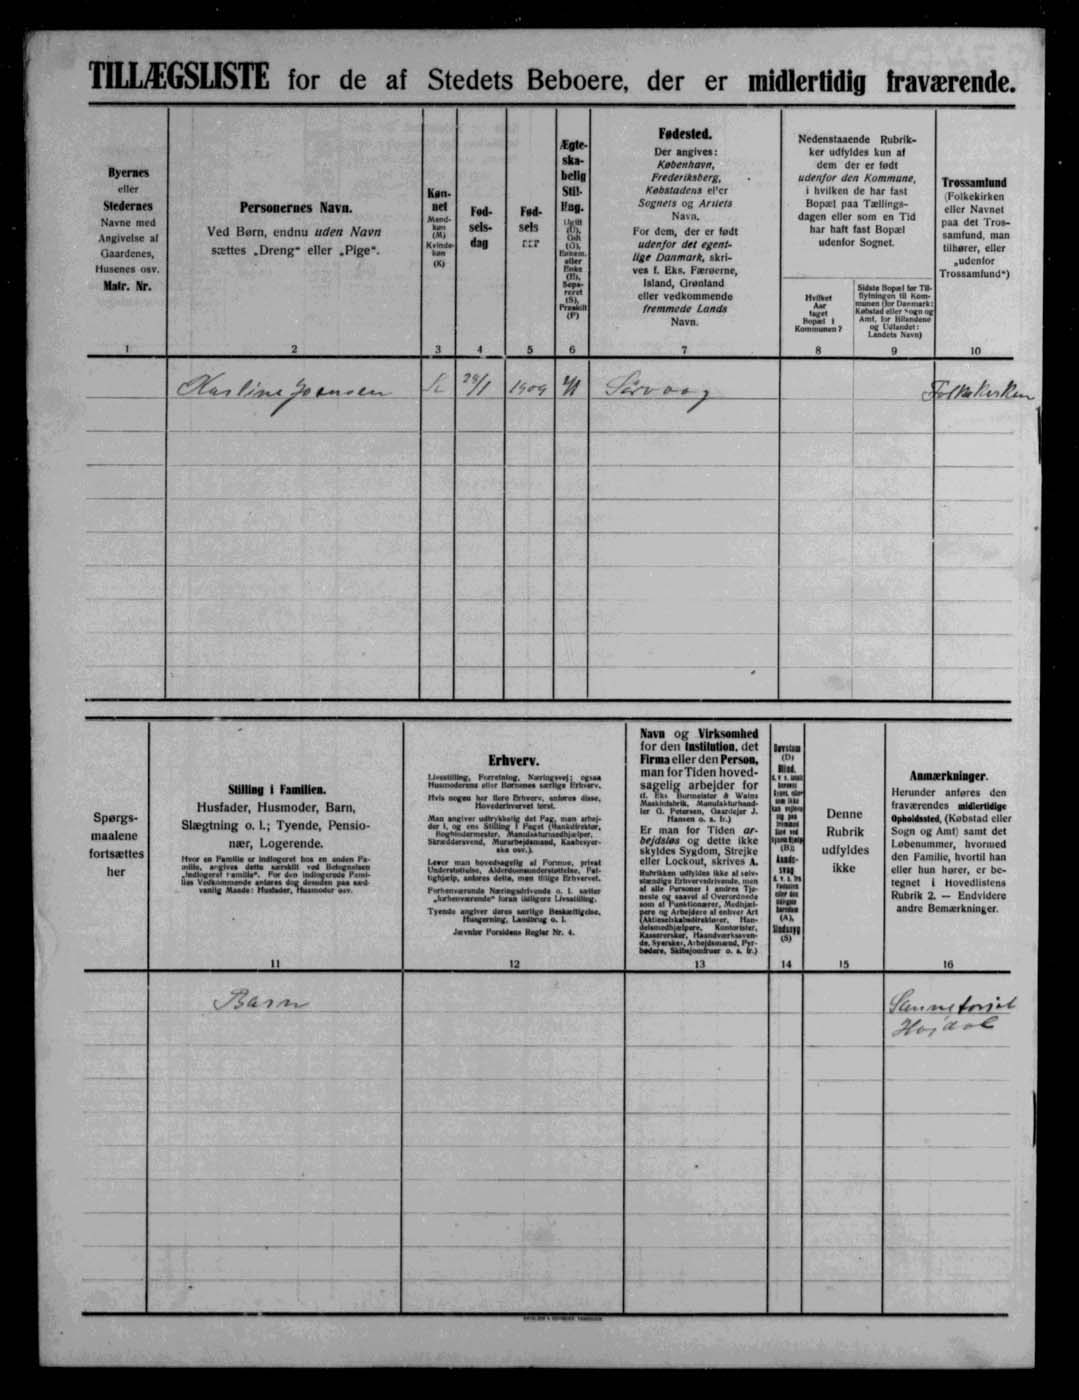 TILLÆGSLISTE for de af Stedets Beboere, der er midlertidig fraværende.
Byernes
eller
Stedernes
Navne med
Angivelse af
Gaardenes,
Husenes osv.
Matr. Nr.
Personernes Navn.
Ved Børn, endnu uden Navn
sættes „Dreng“ eller „Pige“.
Køn-
net
Mand-
køn
(M)
Kvinde-
køn
(K)
Fød-
sels-
dag
Fød-
sels
Ægte-
ska-
belig
Stil-
ling.
Ugift
(U),
Gift
(G),
Enkem.
eller
Enke
(E),
Sepa-
reret
(S),
Fraskilt
(F)
Fødested.
Der angives:
København,
Frederiksberg,
Købstadens eller
Sognets og Amtets
Navn.
For dem, der er født
udenfor det egent-
lige Danmark, skri-
ves f. Eks. Færøerne,
Island, Grønland
eller vedkommende
fremmede Lands
Navn.
Nedenstaaende Rubrik-
ker udfyldes kun af
dem der er født
udenfor den Kommune,
i hvilken de har fast
Bopæl paa Tællings-
dagen eller som en Tid
har haft fast Bopæl
udenfor Sognet.
Hvilket
Aar
taget
Bopæl i
Kommunen?
Sidste Bopæl før Til-
flytningen til Kom-
munen (for Danmark:
Købstad eller Sogn og
Amt, for Bilandene
og Udlandet:
Landets Navn)
Trossamfund
(Folkekirken
eller Navnet
paa det Tros-
samfund, man
tilhører, eller
„udenfor
Trossamfund“)
1 2 3 4 5 6 7 8 9 10
Joensen K 29/1 1909 Sørvaag Folkekirken
Spørgs-
maalene
fortsættes
her
Stilling i Familien.
Husfader, Husmoder, Barn,
Slægtning o. l.; Tyende, Pensio-
nær, Logerende.
Hvor en Familie er indlogeret hos en anden Fa-
milie, angives dette særskilt ved Betegnelsen
„indlogeret Familie“. For den indlogerede Fami-
lies Vedkommende anføres dog desuden paa sæd-
vanlig Maade: Husfader, Husmoder osv.
Erhverv.
Livsstilling, Forretning, Næringsvej; ogsaa
Husmoderens eller Børnenes særlige Erhverv.
Hvis nogen har flere Erhverv, anføres disse,
Hovederhvervet først.
Man angiver udtrykkelig det Fag, man arbej-
der i, og ens Stilling i Faget (Bankdirektør,
Bogbindermester, Manufakturmedhjælper,
Skræddersvend, Murarbejdsmand, Kaabesyer-
ske osv.).
Lever man hovedsagelig af Formue, privat
Understøttelse, Alderdomsunderstøttelse, Fat-
tighjælp, anføres dette, men tillige Erhvervet.
Forhenværende Næringsdrivende o. l. sætter
„forhenværende“ foran tidligere Livsstilling.
Tyende angiver deres særlige Beskæftigelse,
Husgerning, Landbrug o. l.
Jævnfør Forsidens Regler Nr. 4.
Navn og Virksomhed
for den Institution, det
Firma eller den Person,
man for Tiden hoved-
sagelig arbejder for
(f. Eks. Burmeister & Wains
Maskinfabrik, Manufakturhand-
ler G. Petersen, Gaardejer J.
Hansen o. s. fr.)
Er man for Tiden ar-
bejdsløs og dette ikke
skyldes Sygdom, Strejke
eller Lockout, skrives A.
Rubrikken udfyldes ikke af selv-
stændige Erhvervsdrivende, men
af alle Personer i andres Tje-
neste og saavel af Overordnede
som af Funktionærer, Medhjæl-
pere og Arbejdere af enhver Art
(Aktieselskabsdirektører, Han-
delsmedhjælpere, Kontorister,
Kasserersker, Haandværkssven-
de, Syersker, Arbejdsmænd, Fyr-
bødere, Skibsjomfruer o. s. fr.)
Døvstum
(D)
Blind,
Aands-
svag
(A),
Sindssyg
(S)
Denne
Rubrik
udfyldes
ikke
Anmærkninger.
Herunder anføres den
fraværendes midlertidige
Opholdssted, (Købstad eller
Sogn og Amt) samt det
Løbenummer, hvormed
den Familie, hvortil han
eller hun hører, er be-
tegnet i Hovedlistens
Rubrik 2. — Endvidere
andre Bemærkninger.
11 12 13 14 15 16
Barn